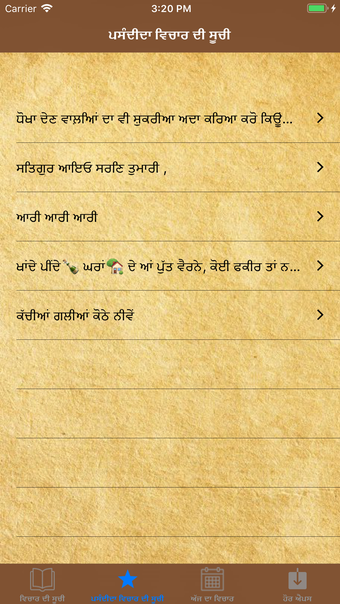 Carrier 3:20 PM
ਪਸੰਦੀਦਾ ਵਿਚਾਰ ਦੀ ਸੂਚੀ
ਧੋਖਾ ਦੇਣ ਵਾਲ਼ਆਿਂ ਦਾ ਵੀ ਸ਼ੁਕਰੀਆ ਅਦਾ ਕਰਿਆ ਕਰੋ ਕਿਊ...
ਸਤਿਗੁਰ ਆਇਓ ਸਰਣਿ ਤੁਮਾਰੀ ,
ਆਰੀ ਆਰੀ ਆਰੀ
ਖ਼ਾਂਦੇ ਪੀਂਦੇ🍾 ਘਰਾਂ🏡 ਦੇ ਆਂ ਪੁੱਤ ਵੈਰਨੇ, ਕੋਈ ਫਕੀਰ ਤਾਂ ਨ...
ਕੱਚੀਆਂ ਗਲੀਆਂ ਕੋਠੇ ਨੀਵੇਂ
ਵਿਚਾਰ ਦੀ ਸੂਚੀ ਪਸੰਦੀਦਾ ਵਿਚਾਰ ਦੀ ਸੂਚੀ ਅੱਜ ਦਾ ਵਿਚਾਰ ਹੋਰ ਐਪਸ